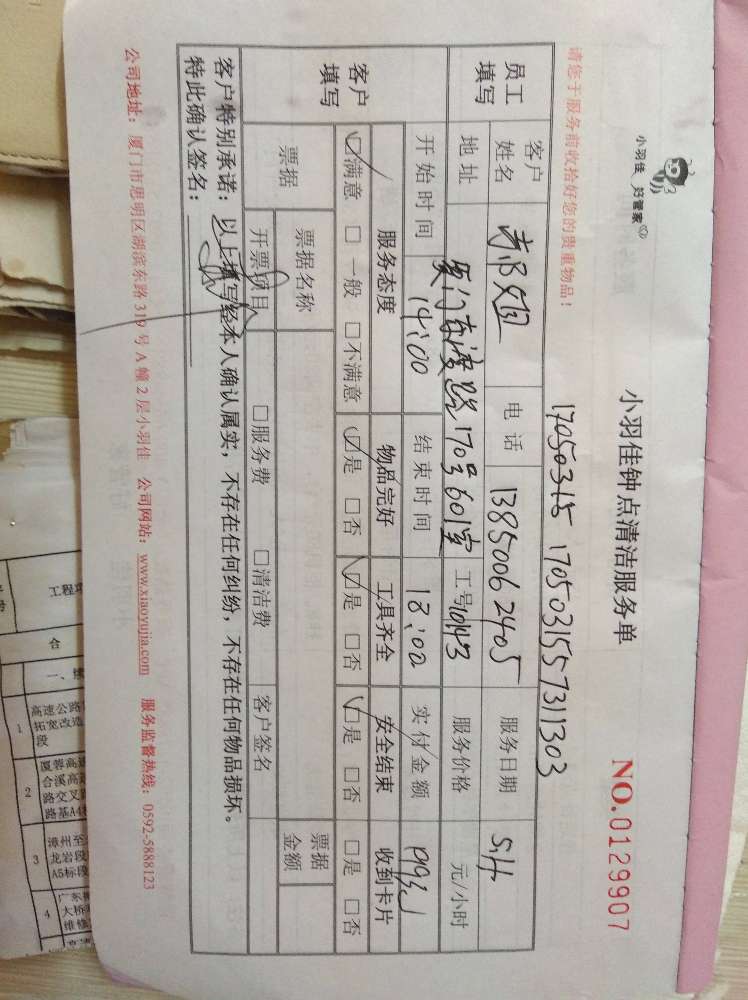 小羽佳 好管家
小羽佳钟点清洁服务单
NO.0129907
请您于服务前收拾好您的贵重物品!
17050315 1705031557311303
员工填写
客户姓名
电话 13850062405
服务日期 5.14
地址 厦门东渡路170号601室
工号10143
服务价格 元/小时
开始时间 14:00
结束时间 18:00
实付金额
客户填写
服务态度 物品完好 工具齐全 安全结束 收到卡片
☑满意 □一般 □不满意 ☑是 □否 ☑是 □否 ☑是 □否 □是 □否
票据
票据名称
票据金额
开票项目 □服务费 □清洁费 客户签名
客户特别承诺:以上填写经本人确认属实,不存在任何纠纷,不存在任何物品损坏。
特此确认签名:
公司地址:厦门市思明区湖滨东路319号A幢2层小羽佳 公司网站:www.xiaoyujia.com 服务监督热线:0592-5888123
合
一、
1 高速公路
拓宽改造
段
2 厦蓉高
合溪高
路交叉
路基A4
3 漳州至
龙岩段
A5标段
4 广东
大桥
维修